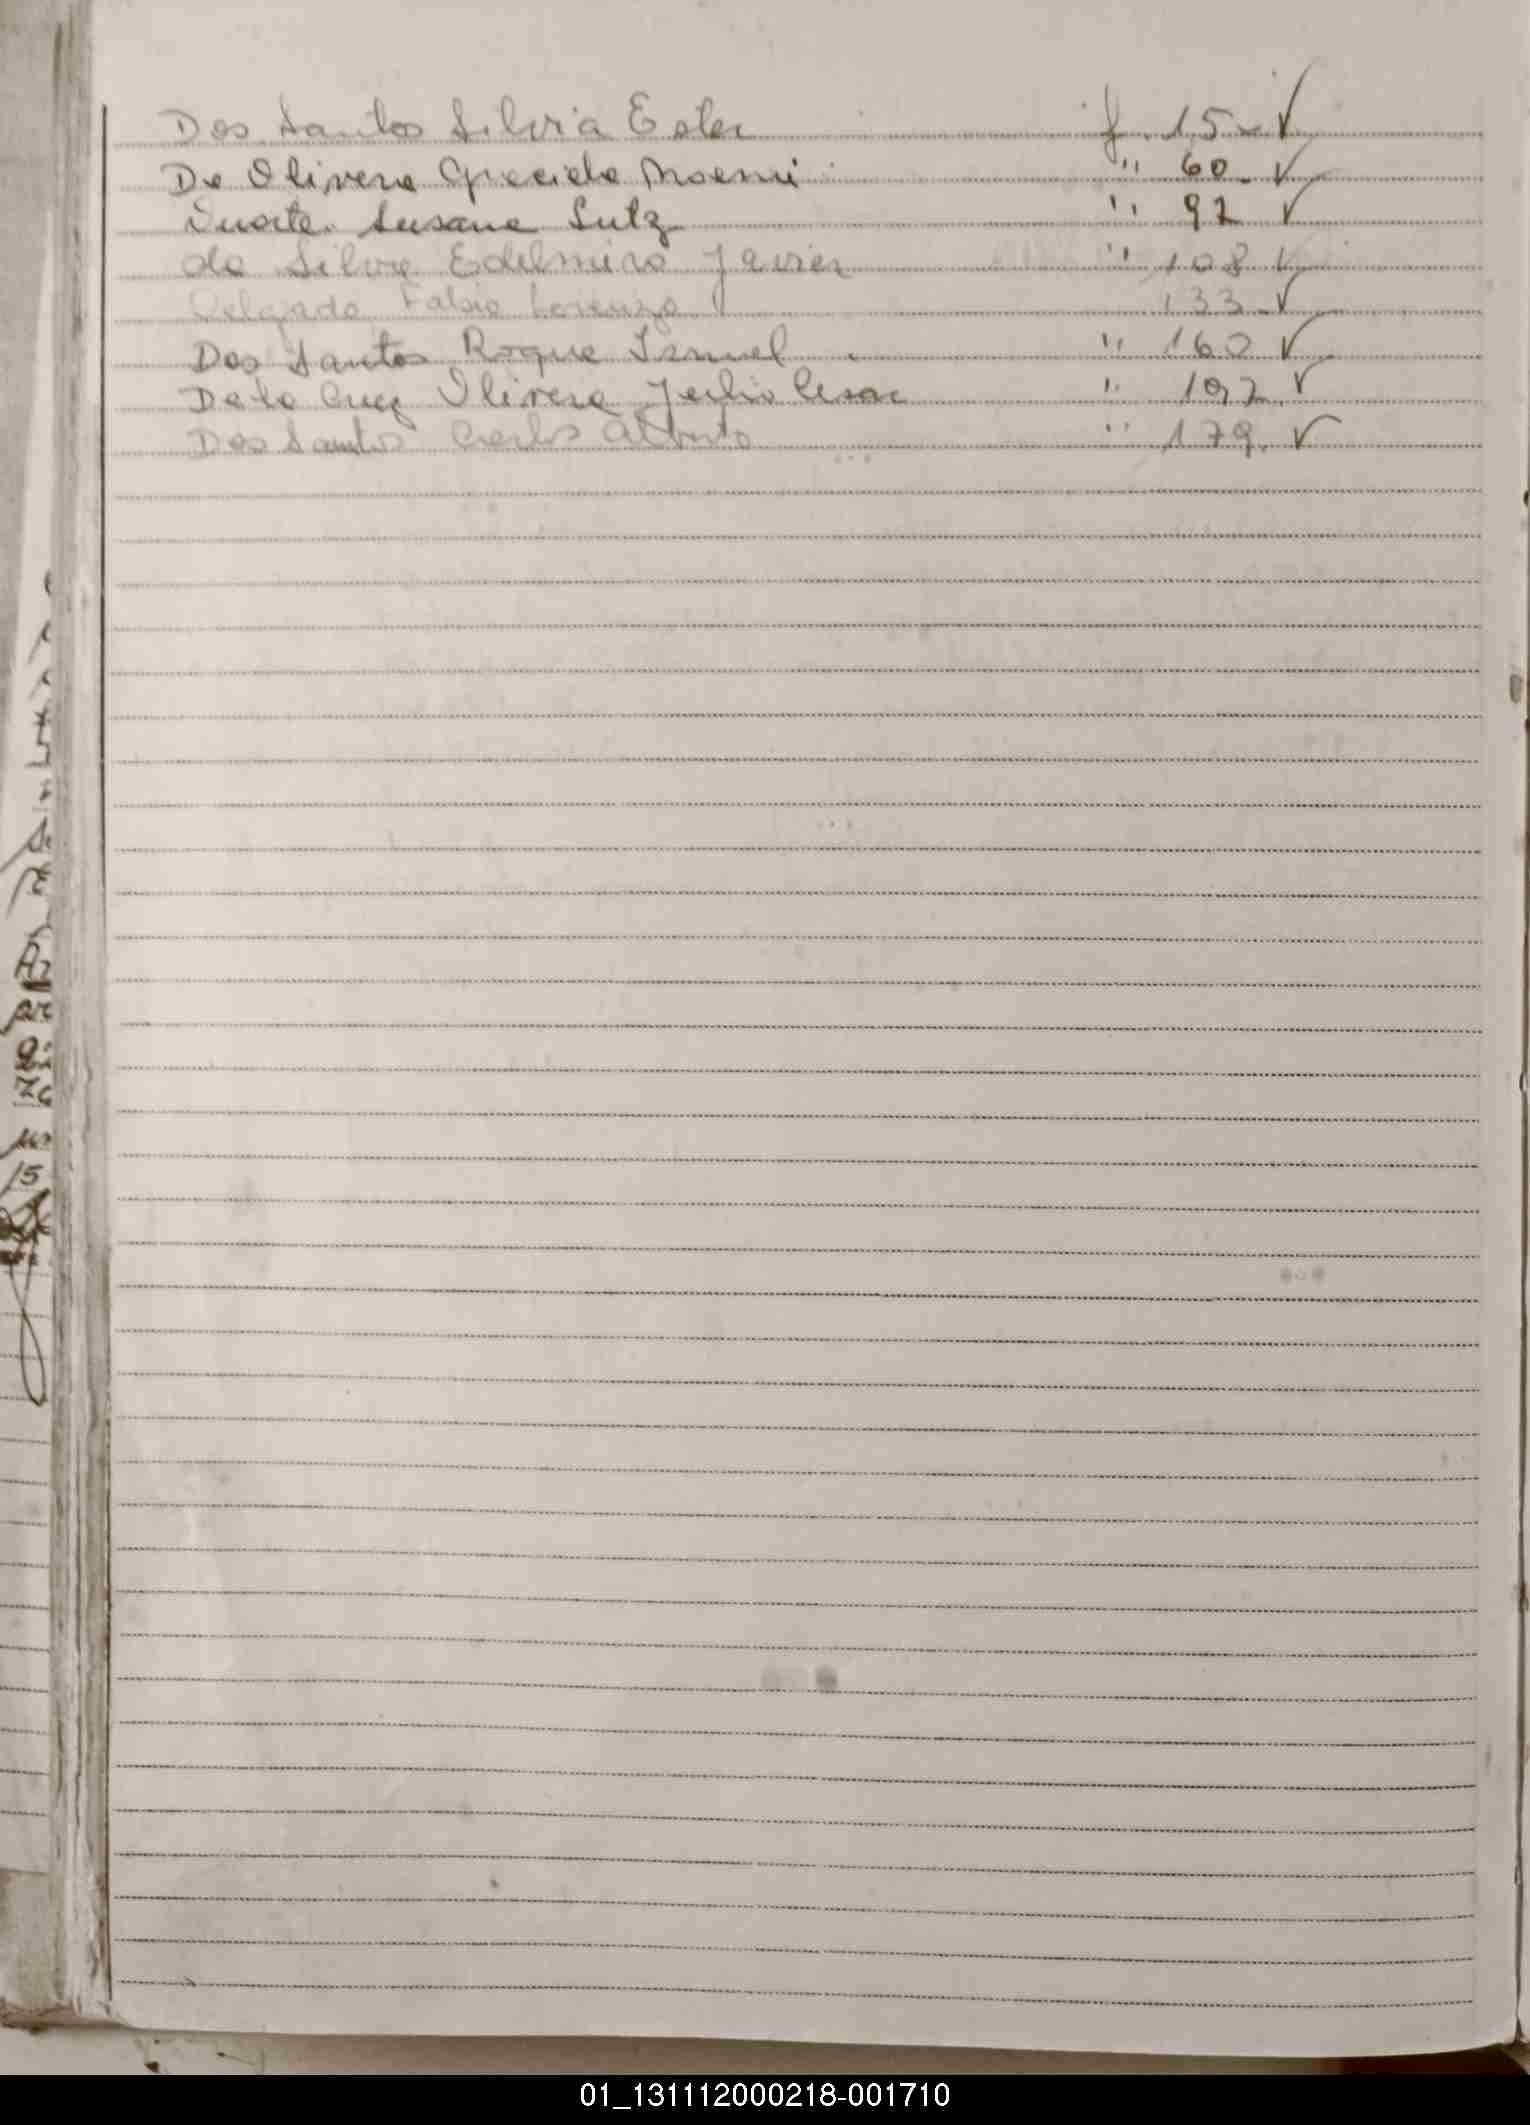 Dos Santos Silvia Ester f. 15 ✓
De Olivera Graciela Noemi " 60. ✓
Duarte Susana Lutz " 92 ✓
da Silva Edelmiro Javier " 108 ✓
Delgado Fabio Lorenzo 133. ✓
Dos Santos Roque Ismael " 160 ✓
De la Cruz Olivera Julio Cesar " 192. ✓
Dos Santos Carlos Alberto " 179. ✓
15
01_131112000218-001710